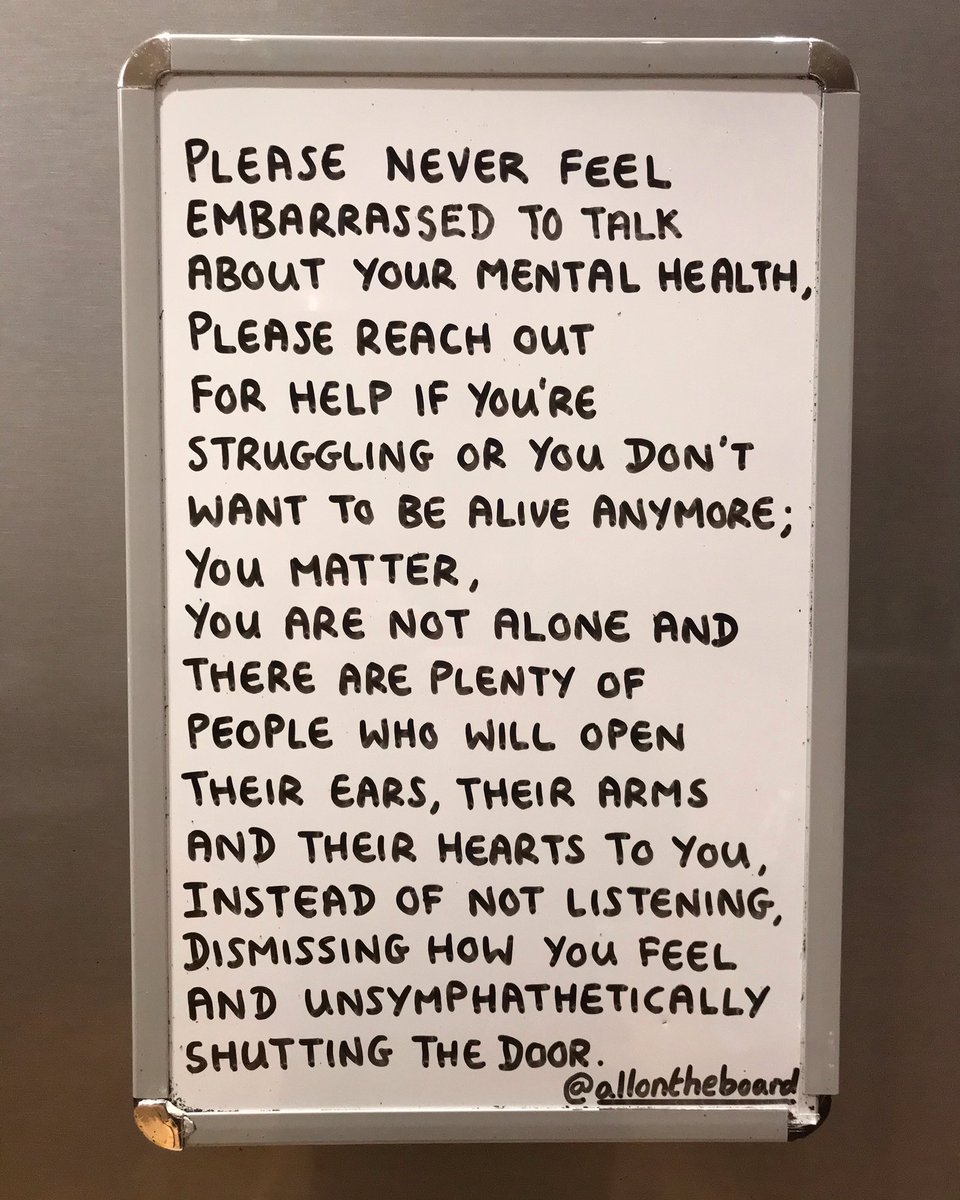 PLEASE NEVER FEEL
EMBARRASSED TO TALK
ABOUT YOUR MENTAL HEALTH,
PLEASE REACH OUT
FOR HELP IF YOU'RE
STRUGGLING OR YOU DON'T
WANT TO BE ALIVE ANYMORE;
YOU MATTER,
YOU ARE NOT ALONE AND
THERE ARE PLENTY OF
PEOPLE WHO WILL OPEN
THEIR EARS, THEIR ARMS
AND THEIR HEARTS TO YOU,
INSTEAD OF NOT LISTENING,
DISMISSING HOW YOU FEEL
AND UNSYMPHATHETICALLY
SHUTTING THE DOOR.
@allontheboard